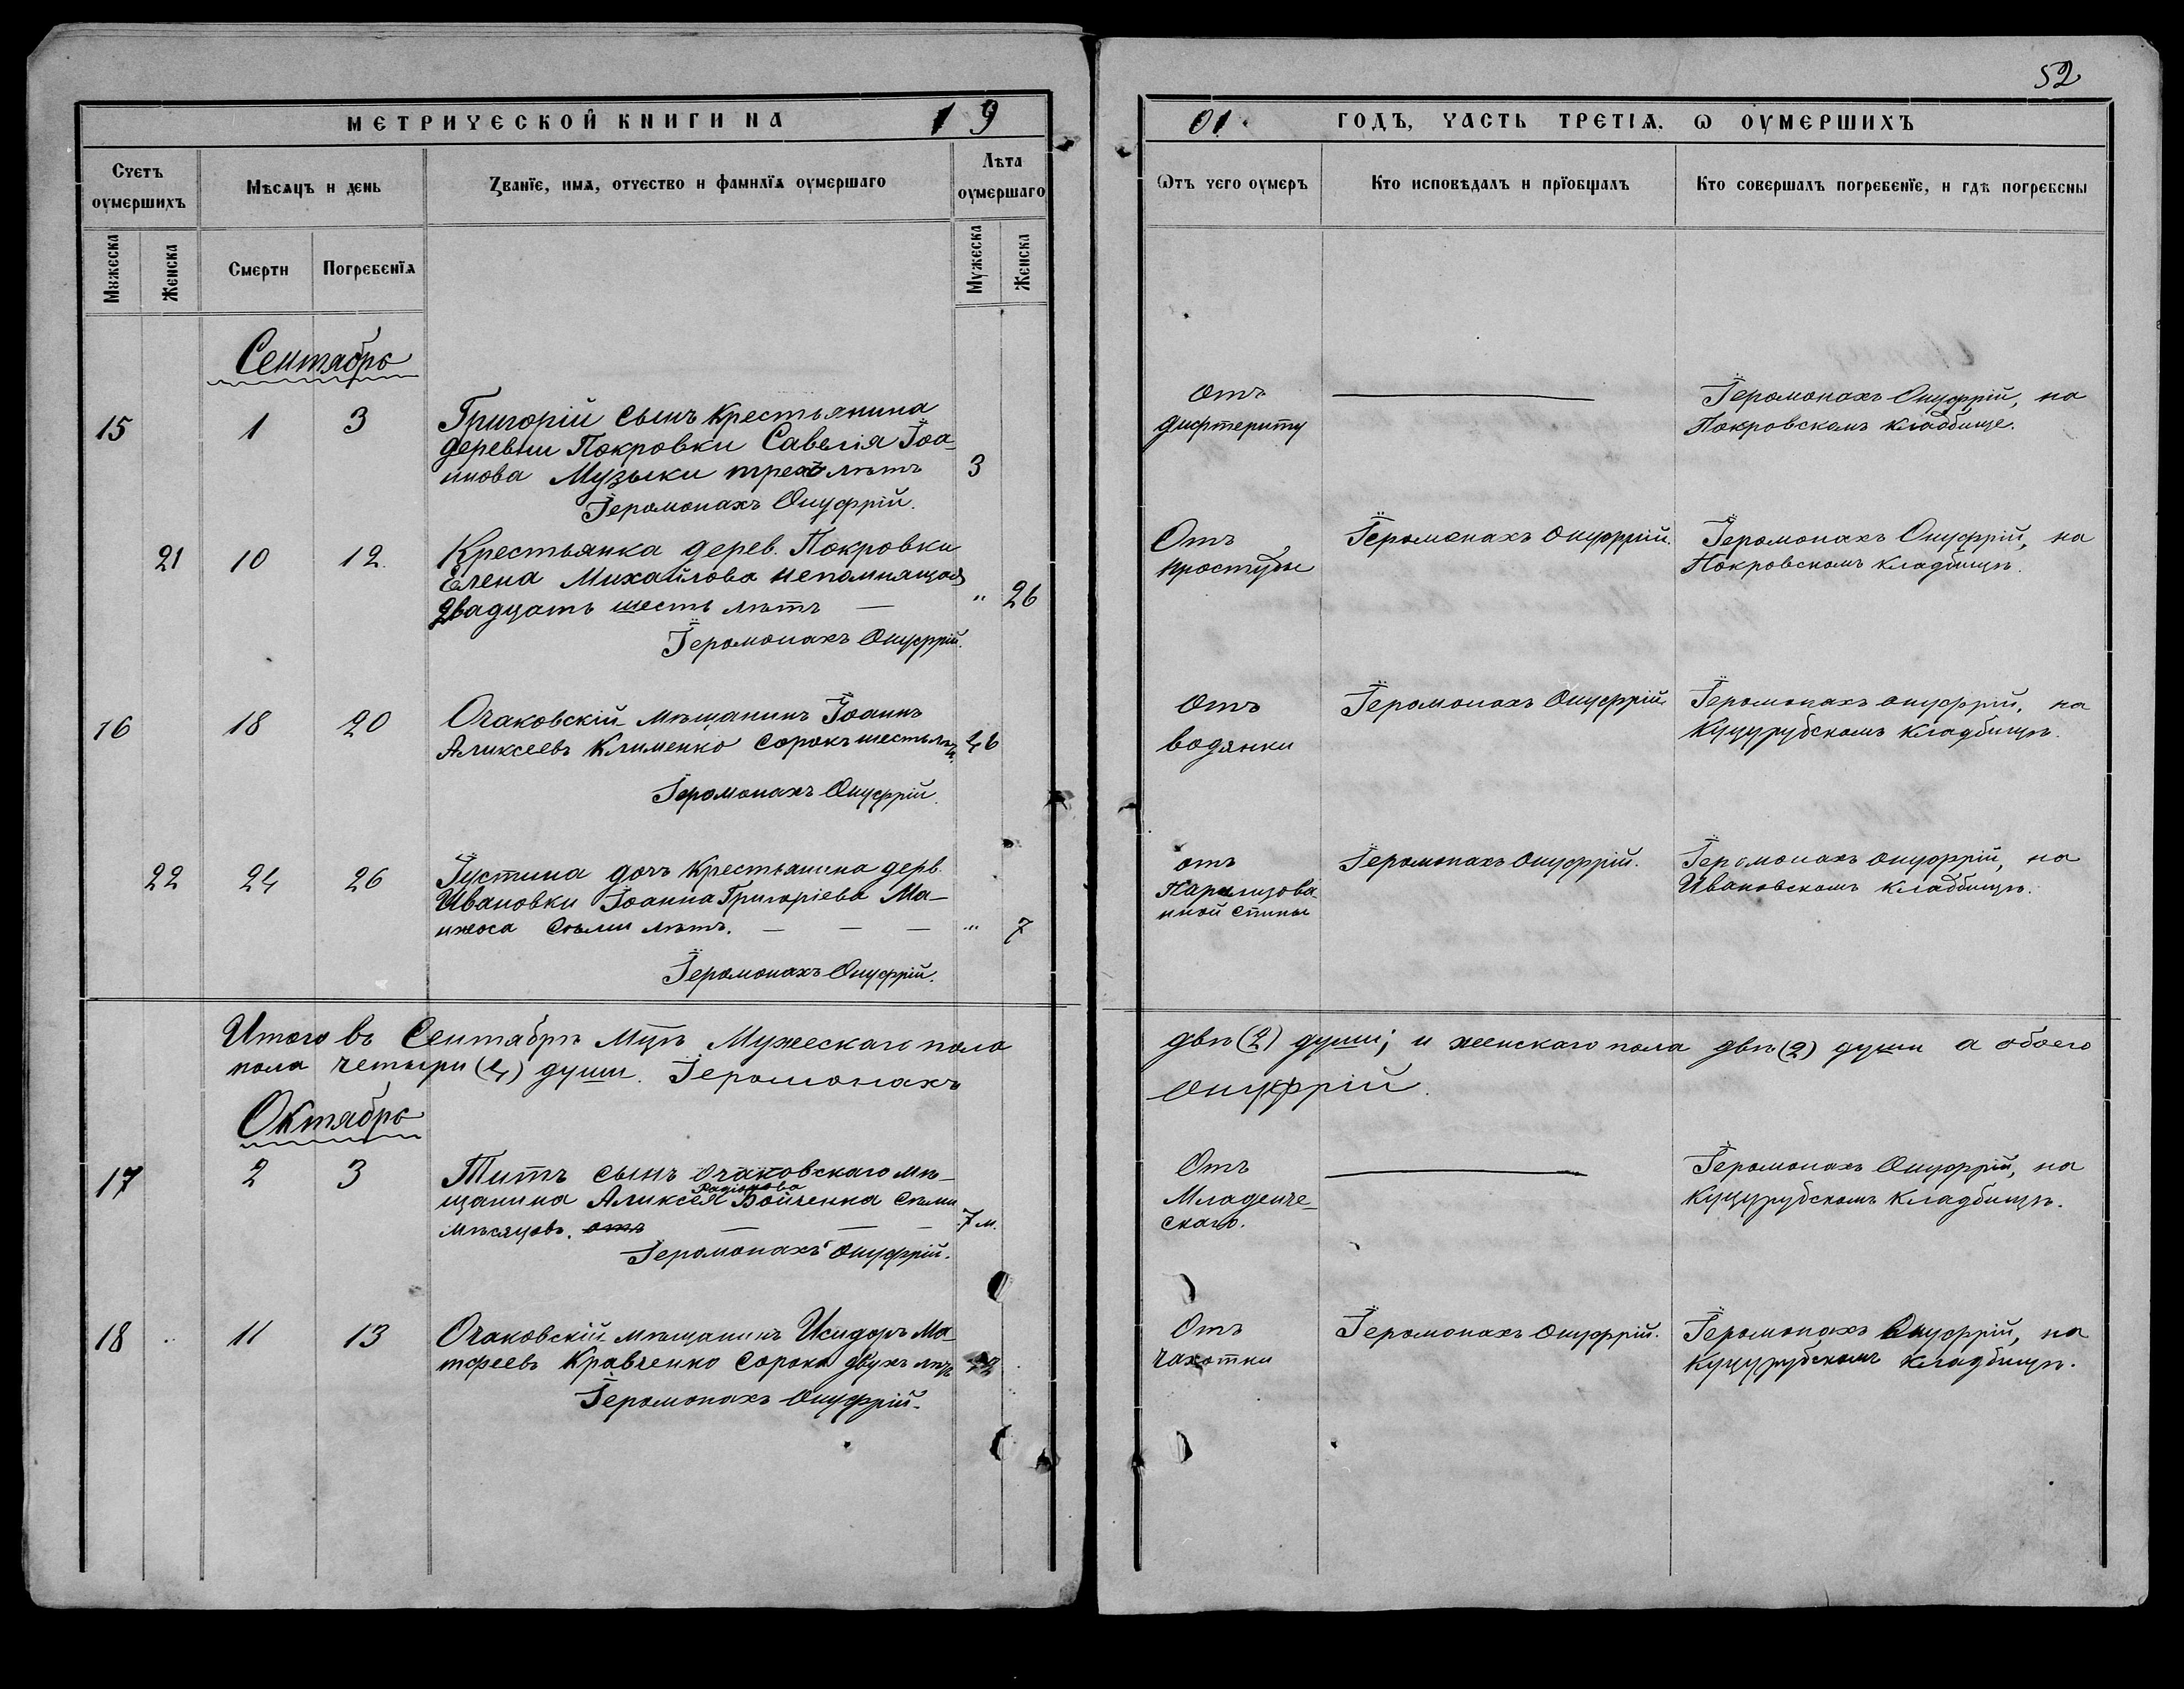 52
МЕТРИЧЕСКОЙ КНИГИ НА 19
01 ГОДЪ, ЧАСТЬ ТРЕТІѦ. Ѡ ОУМЕРШИХЪ
Счетъ оумершихъ
Мѣсяцъ и день
Званїе, имѧ, отчество и фамилїѧ оумершаго
Лѣта оумершаго
Ѿтъ чего оумеръ
Кто исповѣдалъ и прїобщалъ
Кто совершалъ погребенїе, и гдѣ погребены
Мужеска
Женска
Смерти
Погребенїѧ
Мужеска
Женска
Сентябрь
15
1
3
Григорій сынъ крестьянина
деревни Покровки Савелія Іоа-
ннова Музыки трехъ лѣтъ
3
Іеромонахъ Онуфрій.
Отъ
дифтериту
Іеромонахъ Онуфрій, на
Покровскомъ кладбище.
21
10
12.
Крестьянка дерев. Покровки
Елена Михайлова непомнящая
двадцать шесть лѣтъ —
" 26
Іеромонахъ Онуфрій.
Отъ
простуды
Іеромонахъ Онуфрій.
Іеромонахъ Онуфрій, на
Покровскомъ кладбищѣ.
16
18
20
Очаковскій мѣщанинъ Іоаннъ
Аликсеевъ Клименко сорокъ шесть лѣт.
46
Іеромонахъ Онуфрій.
Отъ
водянки
Іеромонахъ Онуфрій.
Іеромонахъ онуфрій, на
Куцурубскомъ кладбищѣ.
22
24
26
Іустина дочь крестьянина дерв.
Ивановки Іоанна Григоріева Ма-
нжоса семи лѣтъ. — — —
" 7
Іеромонахъ Онуфрій.
отъ
Парализова-
нной спины
Іеромонахъ Онуфрій.
Іеромонахъ онуфрій, на
Ивановскомъ кладбищѣ.
Итого въ Сентябрѣ Мцѣ Мужескаго пола
двѣ (2) души; и женскаго пола двѣ (2) души а обоего
пола четыри (4) души. Іеромонахъ
Онуфрій.
Октябрь
17
2
3
Титъ сынъ Очаковскаго мѣ-
Радіонова
щанина Аликсея Бойченка семи
мѣсяцовъ. отъ — — —
7 м.
Іеромонахъ Онуфрій.
Отъ
Младенче-
скаго.
Іеромонахъ Онуфрій, на
Куцурубскомъ кладбищѣ.
18
11
13
Очаковскій мѣщанинъ Исидоръ Ма-
тфеевъ Кравченко сорока двухъ лѣтъ
42
Іеромонахъ Онуфрій.
Отъ
чахотки
Іеромонахъ Онуфрій.
Іеромонахъ Онуфрій, на
Куцурубскомъ кладбищѣ.